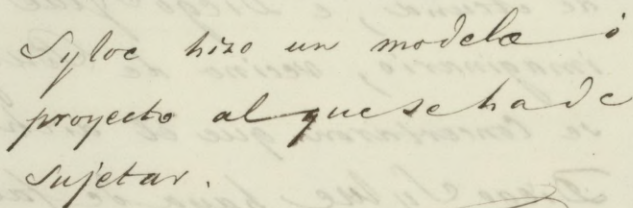 Syloe hizo un modelo ó
proyecto al que se ha de
sujetar.